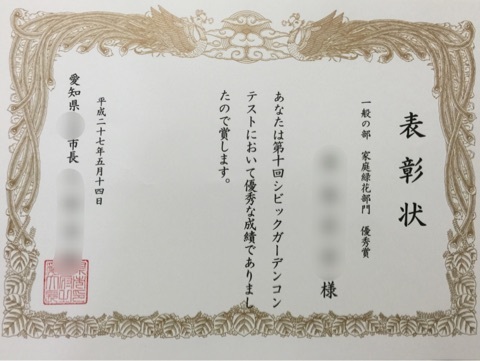 表彰状
一般の部 家庭緑花部門 優秀賞
様
あなたは第十回シビックガーデンコン
テストにおいて優秀な成績でありまし
たので賞します。
平成二十七年五月十四日
愛知県 市長